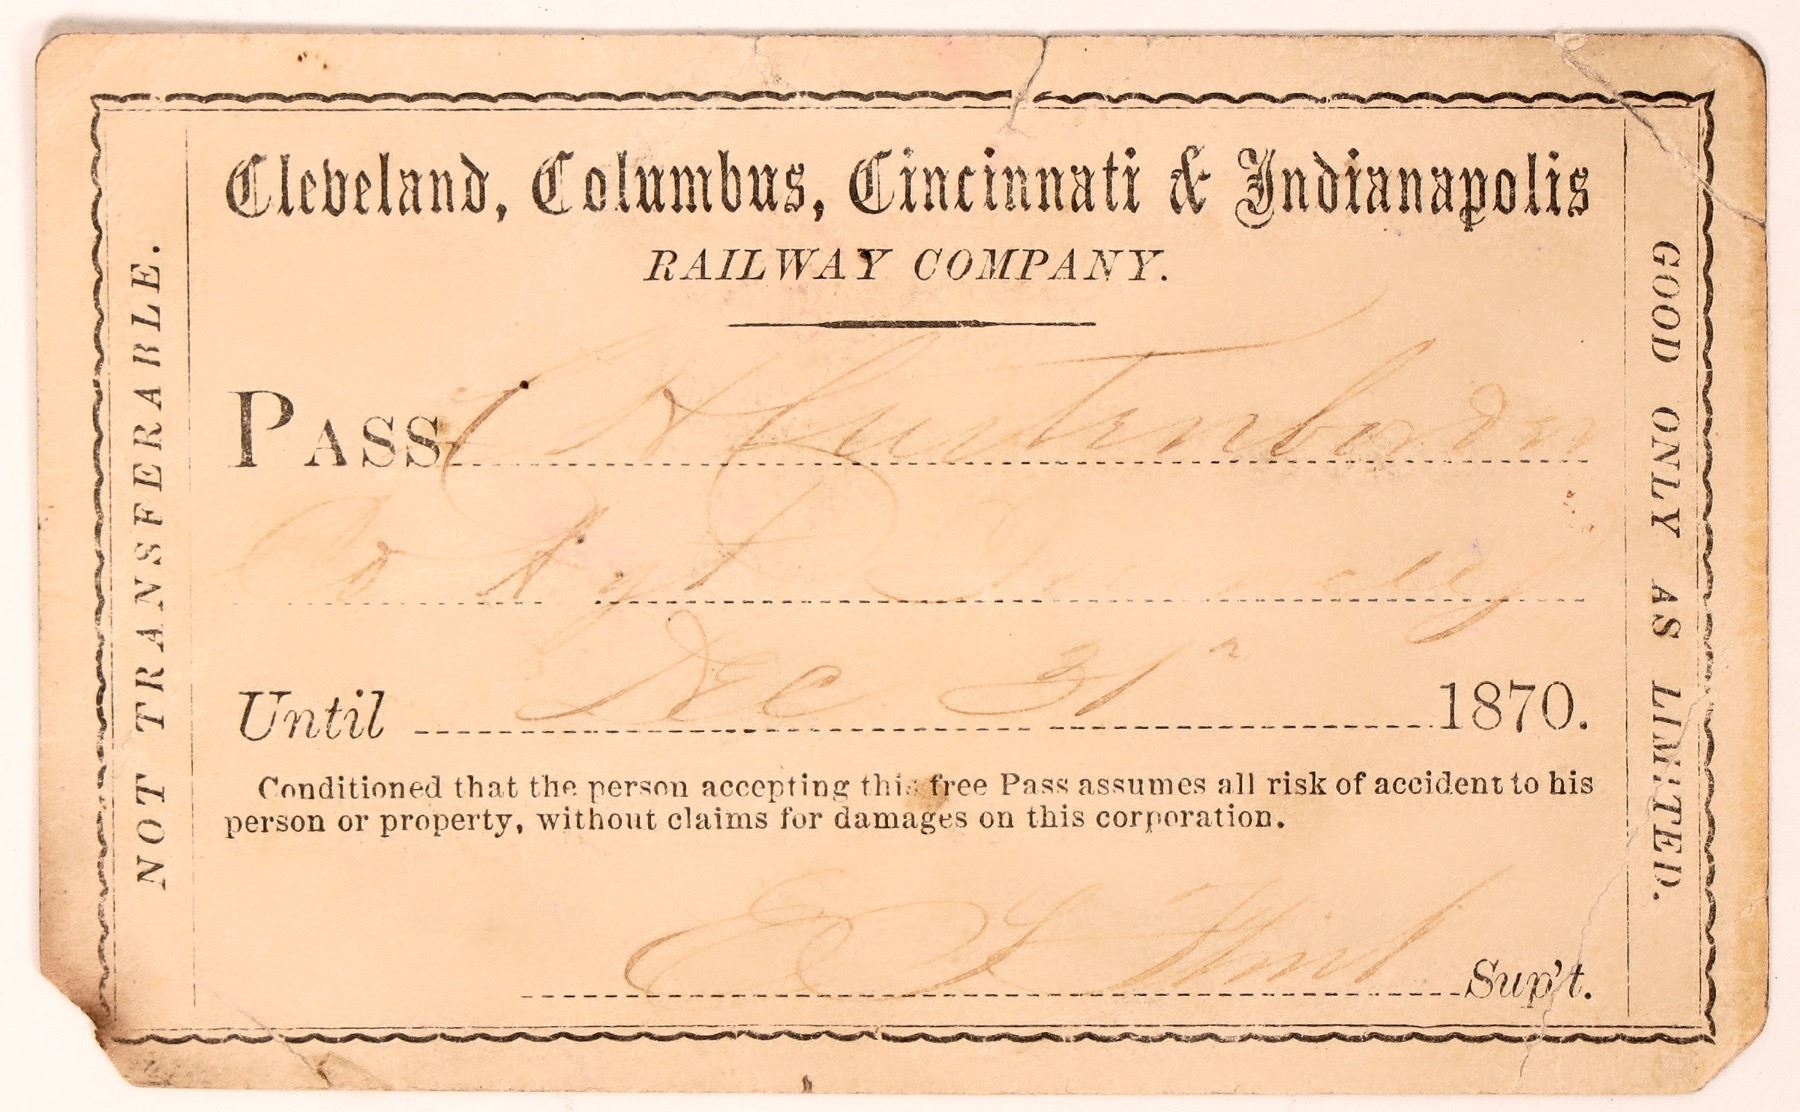 Cleveland, Columbus, Cincinnati & Indianapolis
RAILWAY COMPANY.
PASS
Until Dec 31 1870.
Conditioned that the person accepting this free Pass assumes all risk of accident to his
person or property, without claims for damages on this corporation.
E S Flint Sup't.
NOT TRANSFERABLE.
GOOD ONLY AS LIMITED.